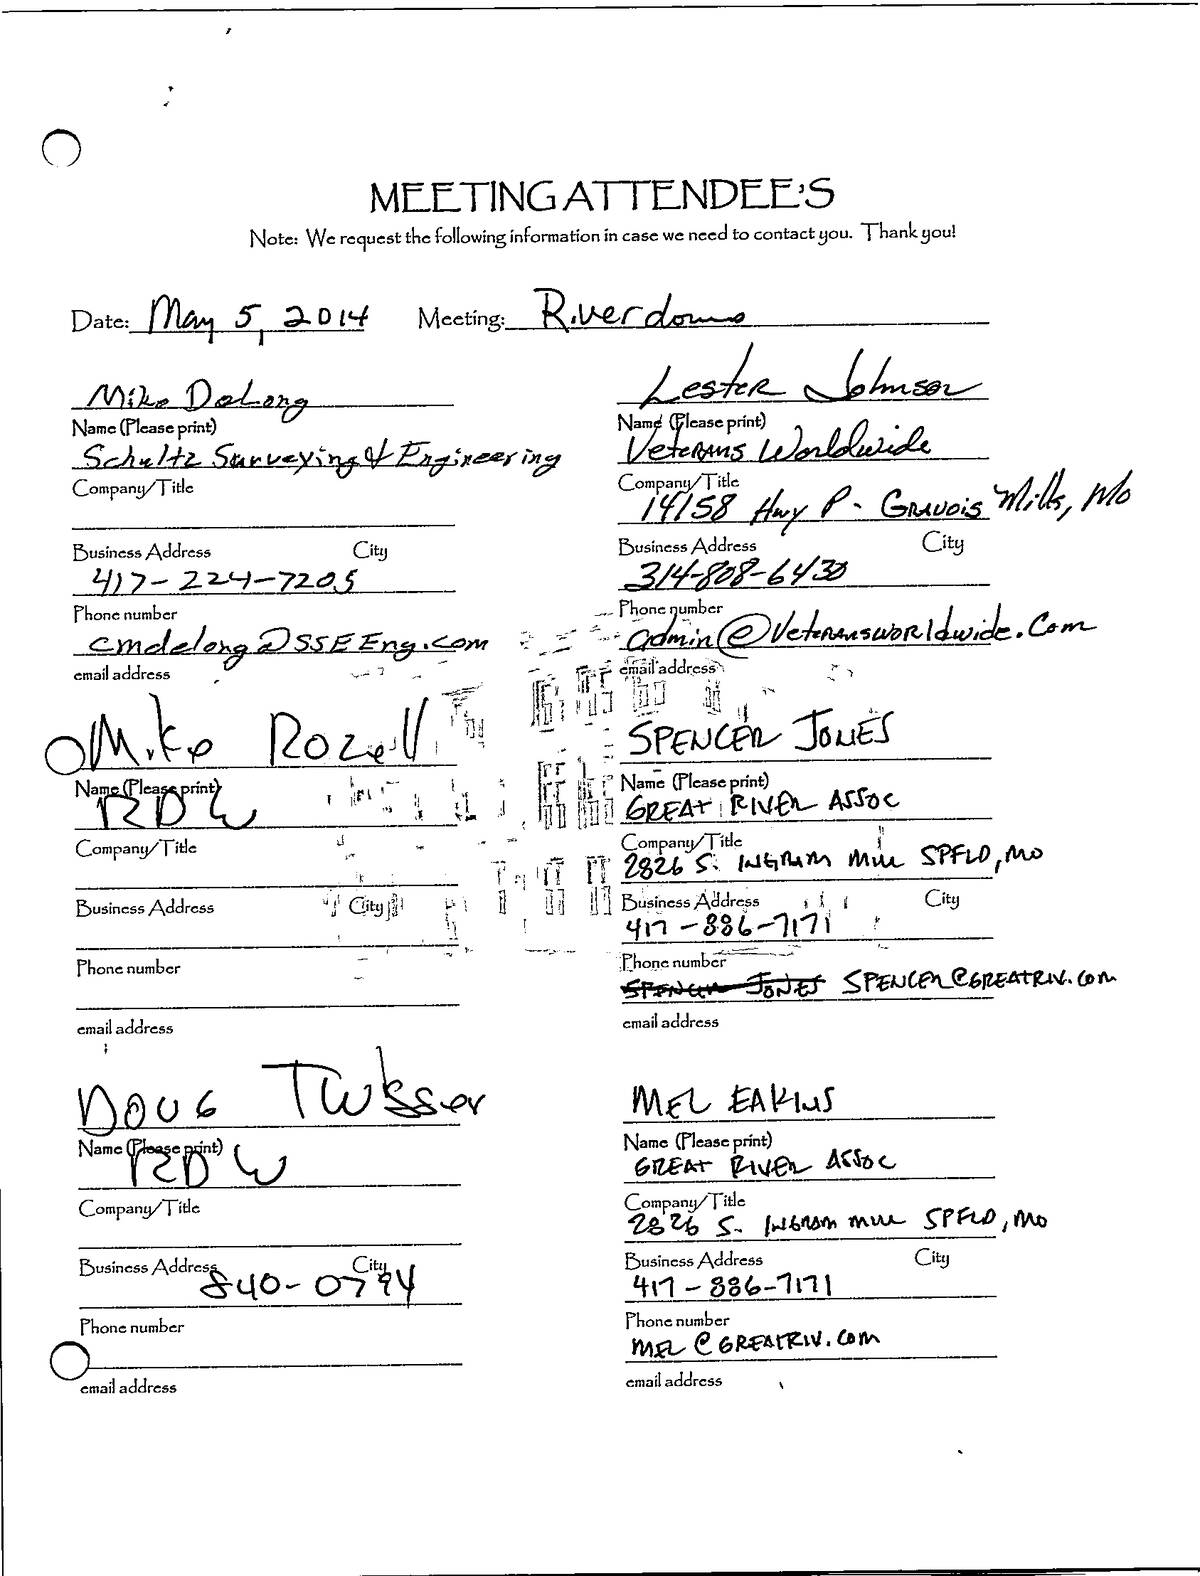 MEETING ATTENDEE'S
Note: We request the following information in case we need to contact you. Thank you!
Date: May 5, 2014 Meeting: Riverdowns
Mike DeLong
Name (Please print)
Schultz Surveying & Engineering
Company/Title
Business Address City
417-224-7205
Phone number
cmdelong@SSEEng.com
email address
Mike Rozell
Name (Please print)
RDW
Company/Title
Business Address City
Phone number
email address
Doug
Name (Please print)
RDW
Company/Title
Business Address City
840-0794
Phone number
email address
Lester Johnson
Name (Please print)
Veterans Worldwide
Company/Title
14158 Hwy P - Gravois Mills, Mo
Business Address City
314-808-6430
Phone number
admin@Veteransworldwide.Com
email address
SPENCER JONES
Name (Please print)
GREAT RIVER ASSOC
Company/Title
2826 S. INGRAM MILL SPFLD, MO
Business Address City
417-886-7171
Phone number
SPENCER JONES SPENCER@GREATRIV.COM
email address
MEL EAKINS
Name (Please print)
GREAT RIVER ASSOC
Company/Title
2826 S. INGRAM MILL SPFLD, MO
Business Address City
417-886-7171
Phone number
MEL@GREATRIV.COM
email address